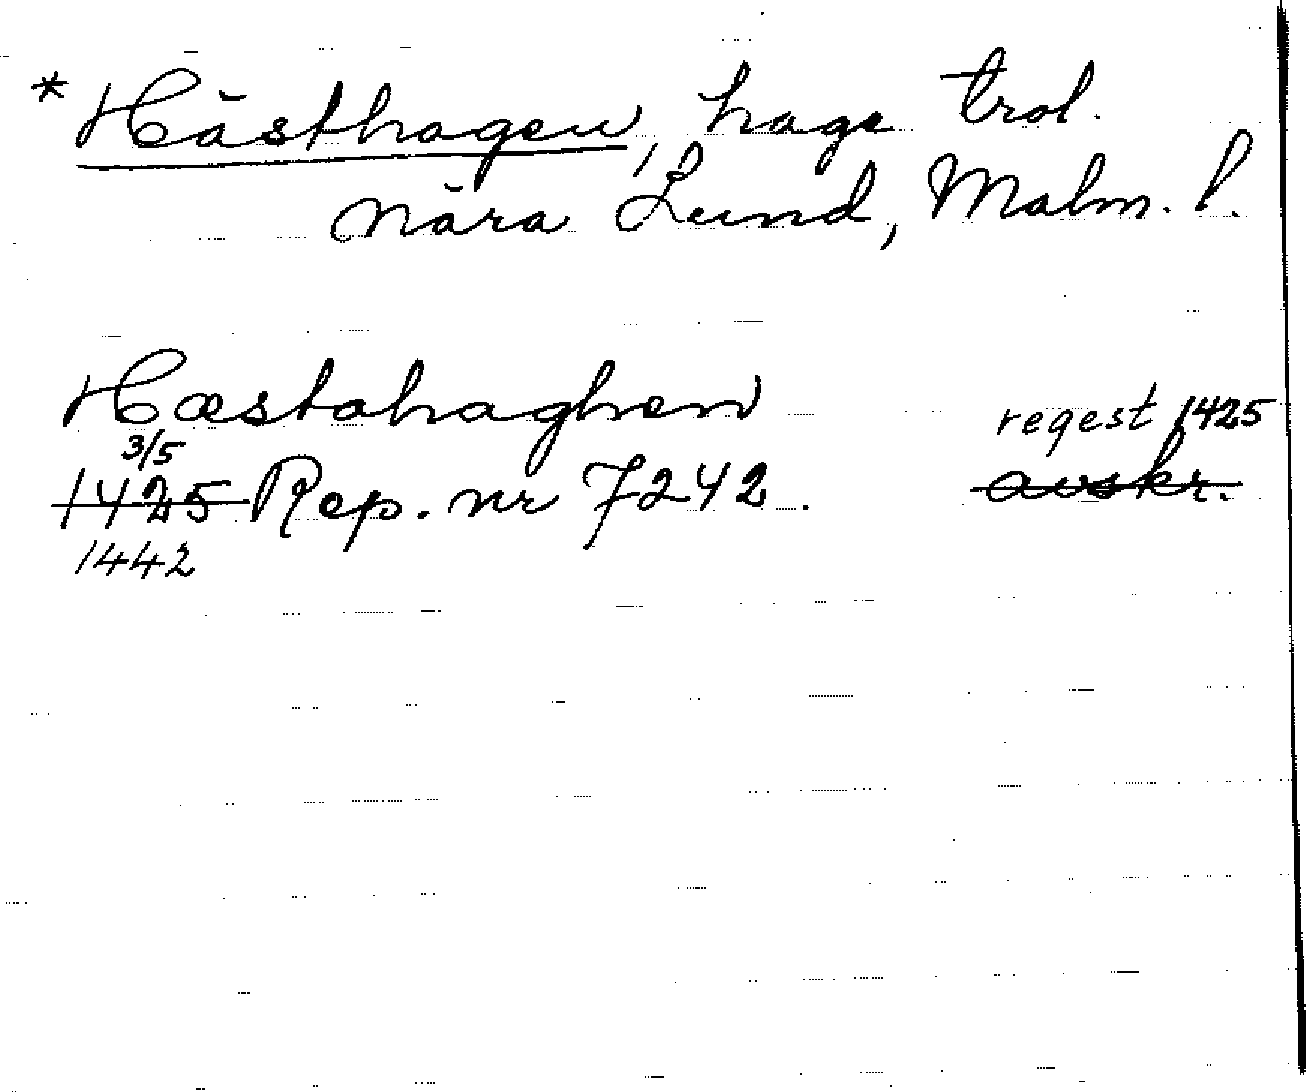 * Hästhagen, hage trol.
nära Lund, Malm. l.
Hæstahaghen
regest 1425
3/5
1425 Rep. nr 7242.
avskr.
1442